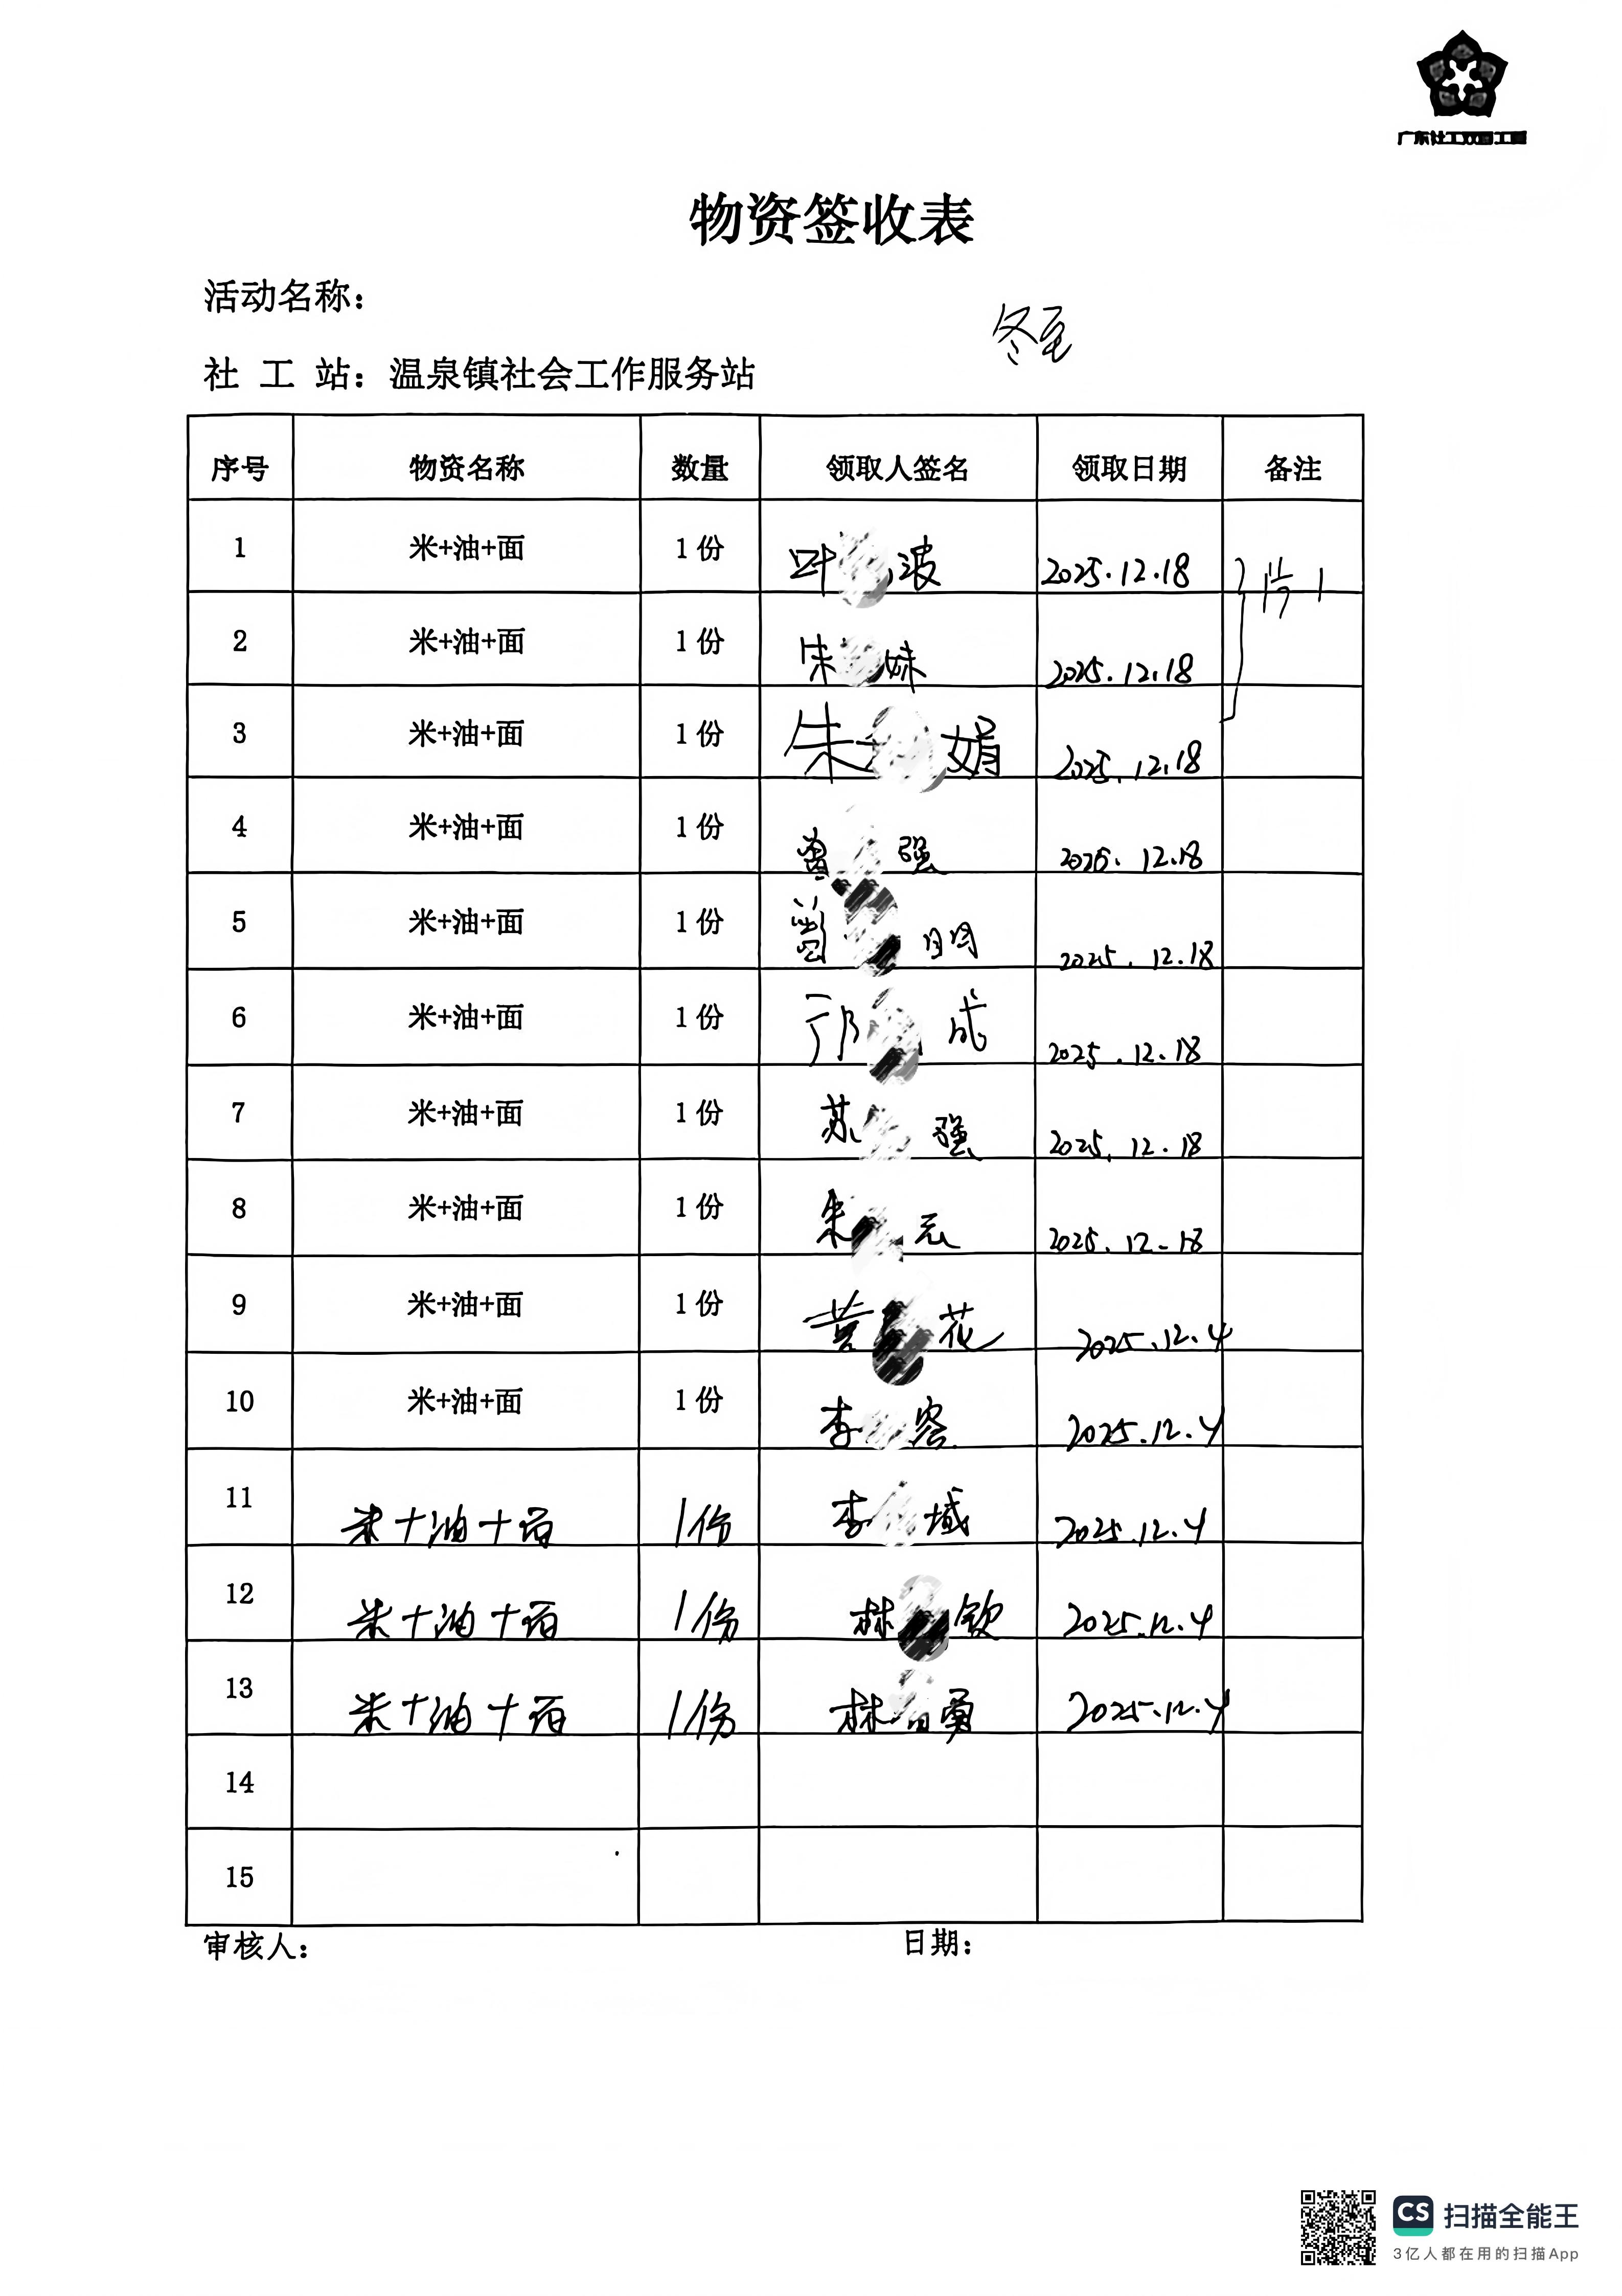 广东社工双百工程
物资签收表
活动名称：
冬至
社 工 站：温泉镇社会工作服务站
序号 物资名称 数量 领取人签名 领取日期 备注
1 米+油+面 1份 叶 波 2025.12.18
2 米+油+面 1份 朱 妹 2025.12.18
3 米+油+面 1份 朱 娟 2025.12.18
4 米+油+面 1份 曾 强 2025.12.18
5 米+油+面 1份 曾 明 2025.12.18
6 米+油+面 1份 邝 成 2025.12.18
7 米+油+面 1份 苏 强 2025.12.18
8 米+油+面 1份 朱 2025.12.18
9 米+油+面 1份 黄 花 2025.12.4
10 米+油+面 1份 李 容 2025.12.4
11 米+油+面 1份 李 域 2025.12.4
12 米+油+面 1份 林 钦 2025.12.4
13 米+油+面 1份 林 勇 2025.12.4
14
15
审核人： 日期：
CS 扫描全能王
3亿人都在用的扫描App